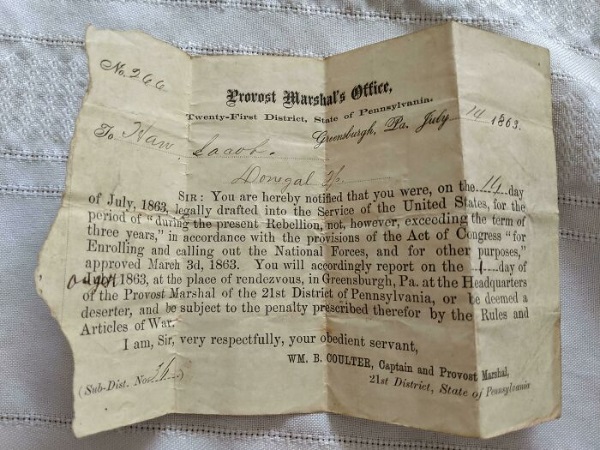 No. 266
Provost Marshal's Office,
Twenty-First District, State of Pennsylvania.
Greensburg, Pa. July 14 1863.
To Haw, Jacob.
Donegal Tp
SIR: You are hereby notified that you were, on the 14 day
of July, 1863, legally drafted into the Service of the United States, for the
period of "during the present Rebellion, not, however, exceeding the term of
three years," in accordance with the provisions of the Act of Congress "for
Enrolling and calling out the National Forces, and for other purposes,"
approved March 3d, 1863. You will accordingly report on the 1 day of
1863, at the place of rendezvous, in Greensburg, Pa. at the Headquarters
of the Provost Marshal of the 21st District of Pennsylvania, or be deemed a
deserter, and be subject to the penalty prescribed therefor by the Rules and
Articles of War.
I am, Sir, very respectfully, your obedient servant,
WM. B. COULTER, Captain and Provost Marshal,
21st District, State of Pennsylvania
(Sub-Dist. No. )